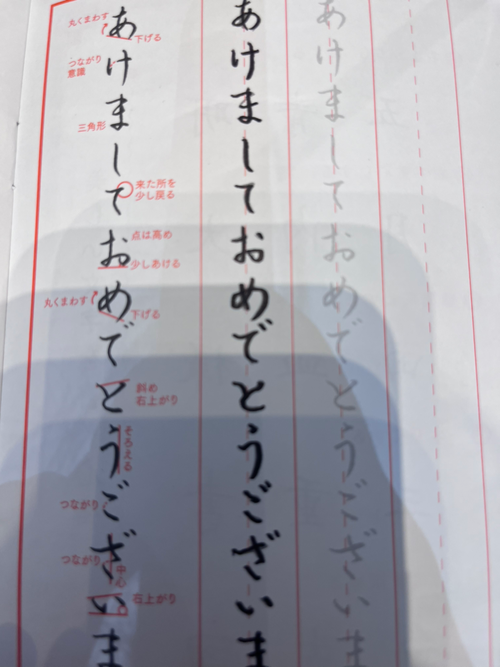 あけましておめでとうございま
あけましておめでとうございま
あけましておめでとうございま
丸くまわす
下げる
つながり
意識
三角形
来た所を
少し戻る
点は高め
少しあける
丸くまわす
下げる
斜め
右上がり
そろえる
つながり
つながり
中心
右上がり